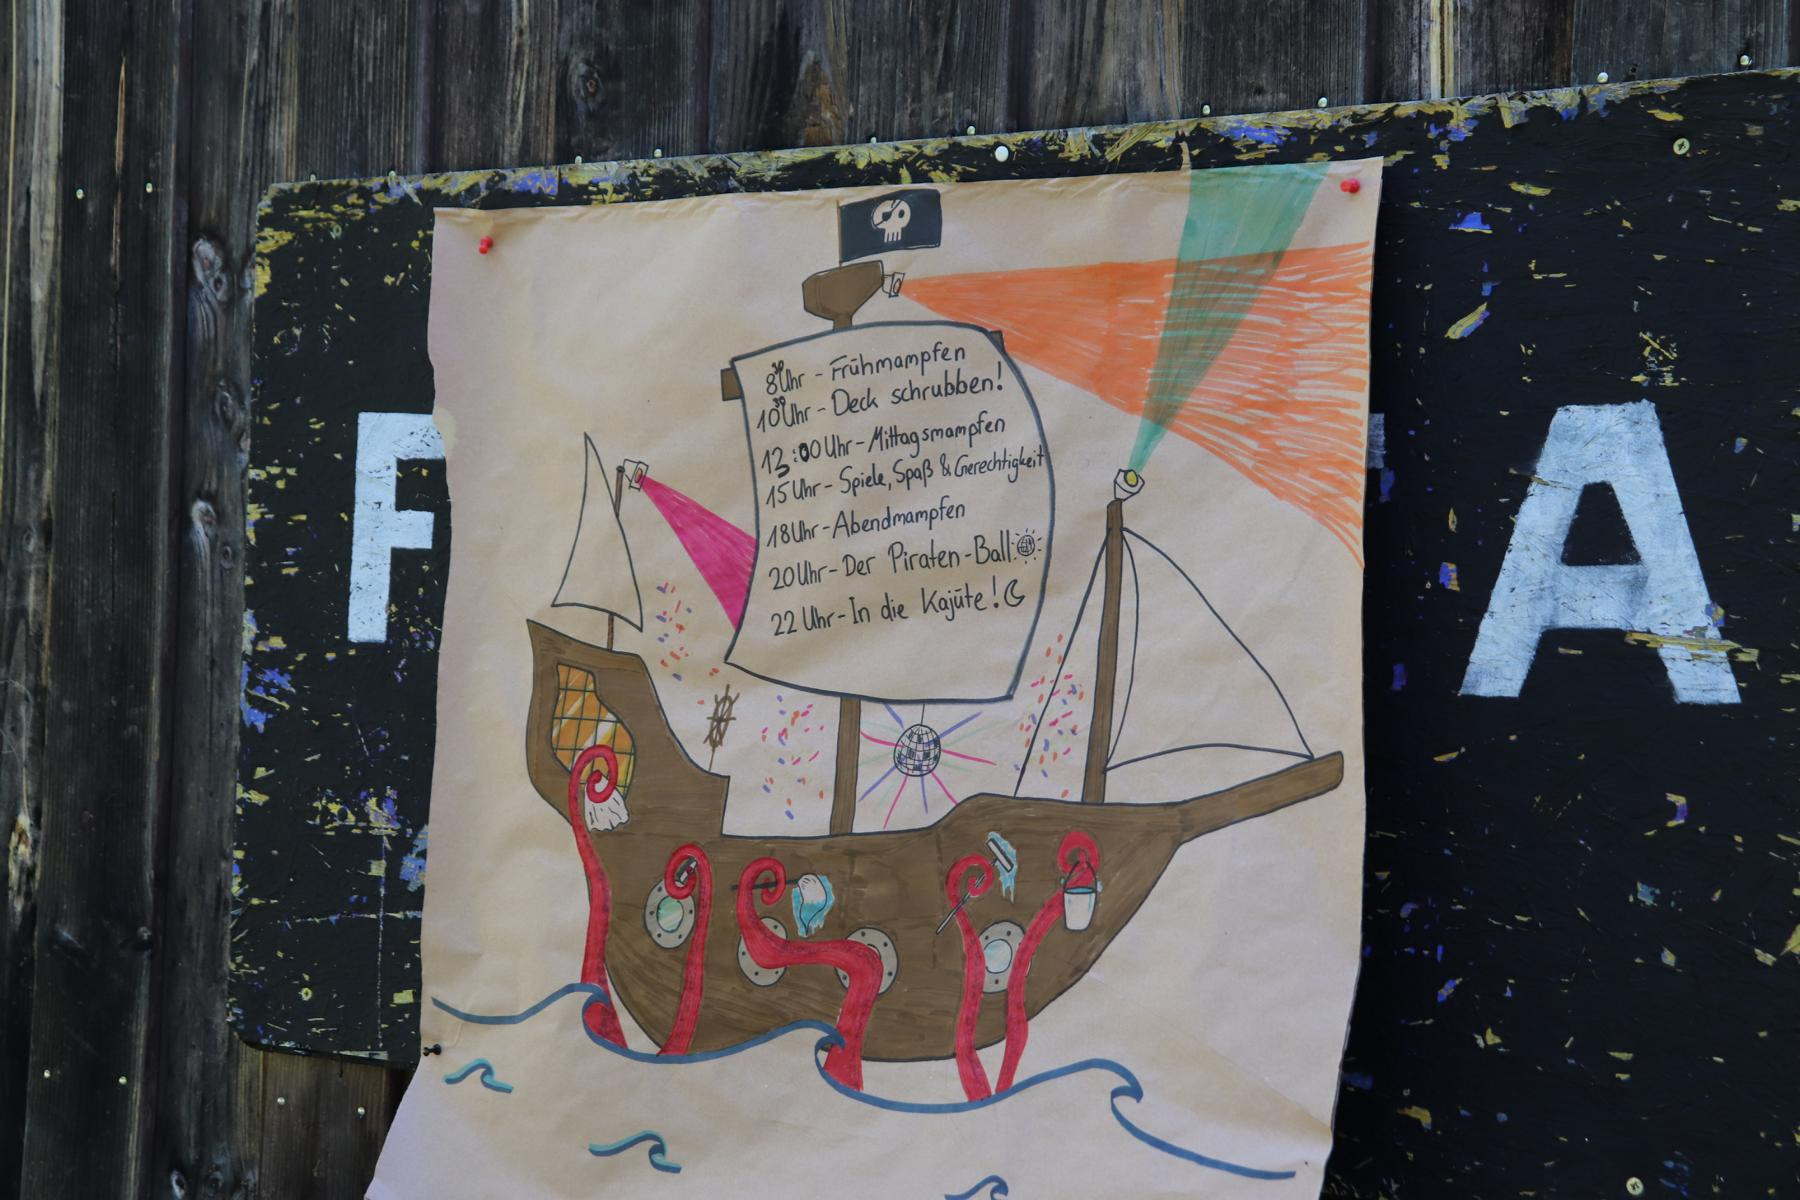 8 30 Uhr - Frühmampfen
10 30 Uhr - Deck schrubben!
13:00 Uhr - Mittagsmampfen
15 Uhr - Spiele, Spaß & Gerechtigkeit
18 Uhr - Abendmampfen
20 Uhr - Der Piraten-Ball
22 Uhr - In die Kajüte!
A